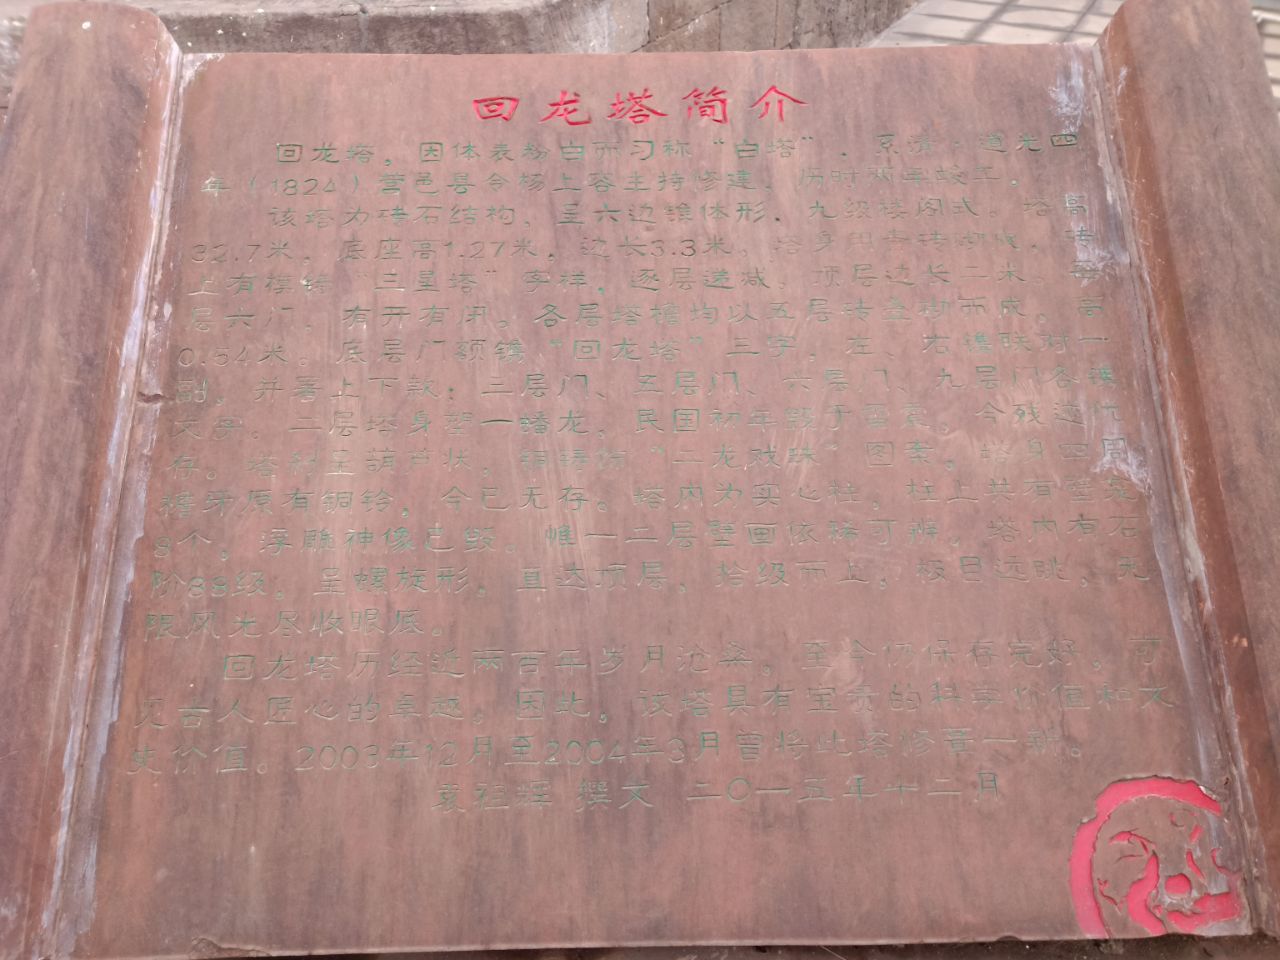 回龙塔简介
回龙塔，因体表粉白而习称“白塔”，系清·道光四
年（1824）营邑县令杨上容主持修建，历时两年竣工。
该塔为砖石结构，呈六边锥体形，九级楼阁式。塔高
32.7米，底座高1.27米，边长3.3米。塔身用青砖砌成，砖
上有模铸“三星塔”字样，逐层递减，顶层边长二米。每
层六门，有开有闭。各层塔檐均以五层砖叠砌而成，高
0.54米。底层门额镌“回龙塔”三字，左、右镌联对一
副，并署上下款；三层门、五层门、六层门、九层门各镌
文字。二层塔身塑一蟠龙，民国初年毁于雷震，今残迹犹
存。塔刹呈葫芦状，铜铸饰“二龙戏珠”图案，塔身四周
檐牙原有铜铃，今已无存。塔内为实心柱，柱上共有壁龛
8个，浮雕神像已毁。惟一二层壁画依稀可辨。塔内有石
阶88级，呈螺旋形，直达顶层，拾级而上，极目远眺，无
限风光尽收眼底。
回龙塔历经近两百年岁月沧桑，至今仍保存完好，可
见古人匠心的卓越。因此，该塔具有宝贵的科学价值和文
史价值。2003年12月至2004年3月曾将此塔修葺一新。
袁祖辉 撰文 二〇一五年十二月